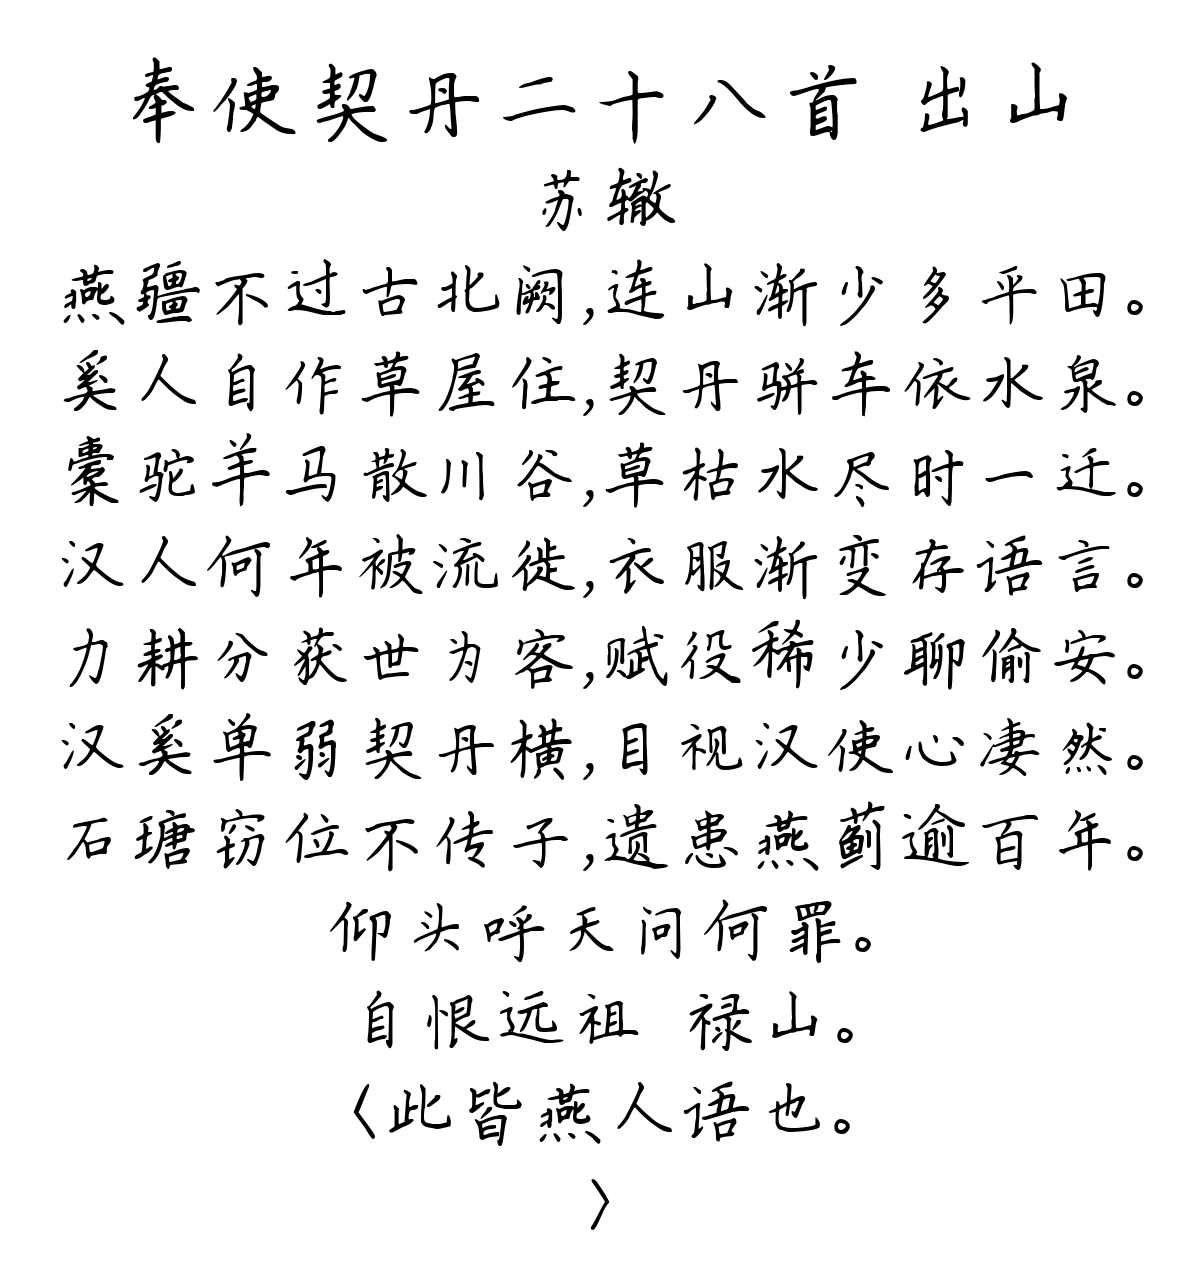 奉使契丹二十八首 出山
苏辙
燕疆不过古北阙,连山渐少多平田。
奚人自作草屋住,契丹骈车依水泉。
橐驼羊马散川谷,草枯水尽时一迁。
汉人何年被流徙,衣服渐变存语言。
力耕分获世为客,赋役稀少聊偷安。
汉奚单弱契丹横,目视汉使心凄然。
石瑭窃位不传子,遗患燕蓟逾百年。
仰头呼天问何罪。
自恨远祖 禄山。
〈此皆燕人语也。
〉